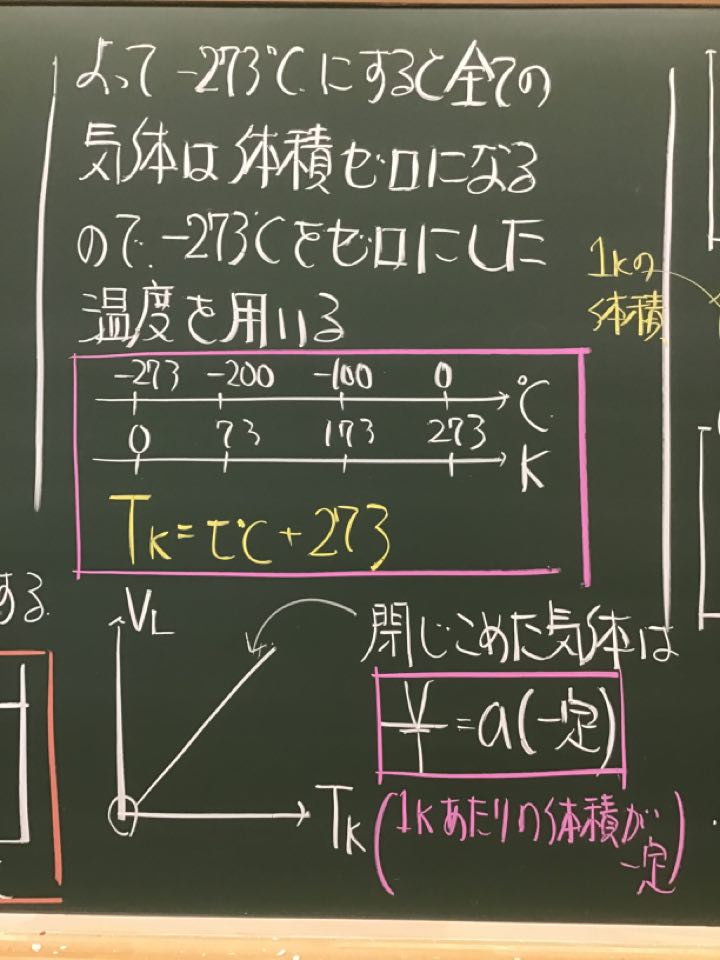 よって -273℃にすると全ての
気体は体積ゼロになる
ので、-273℃をゼロにした
温度を用いる
1Kの
体積
-273 -200 -100 0 ℃
0 73 173 273 K
TK=t℃+273
する
VL
閉じこめた気体は
V/T=a(一定)
TK
(1Kあたりの体積が
一定)